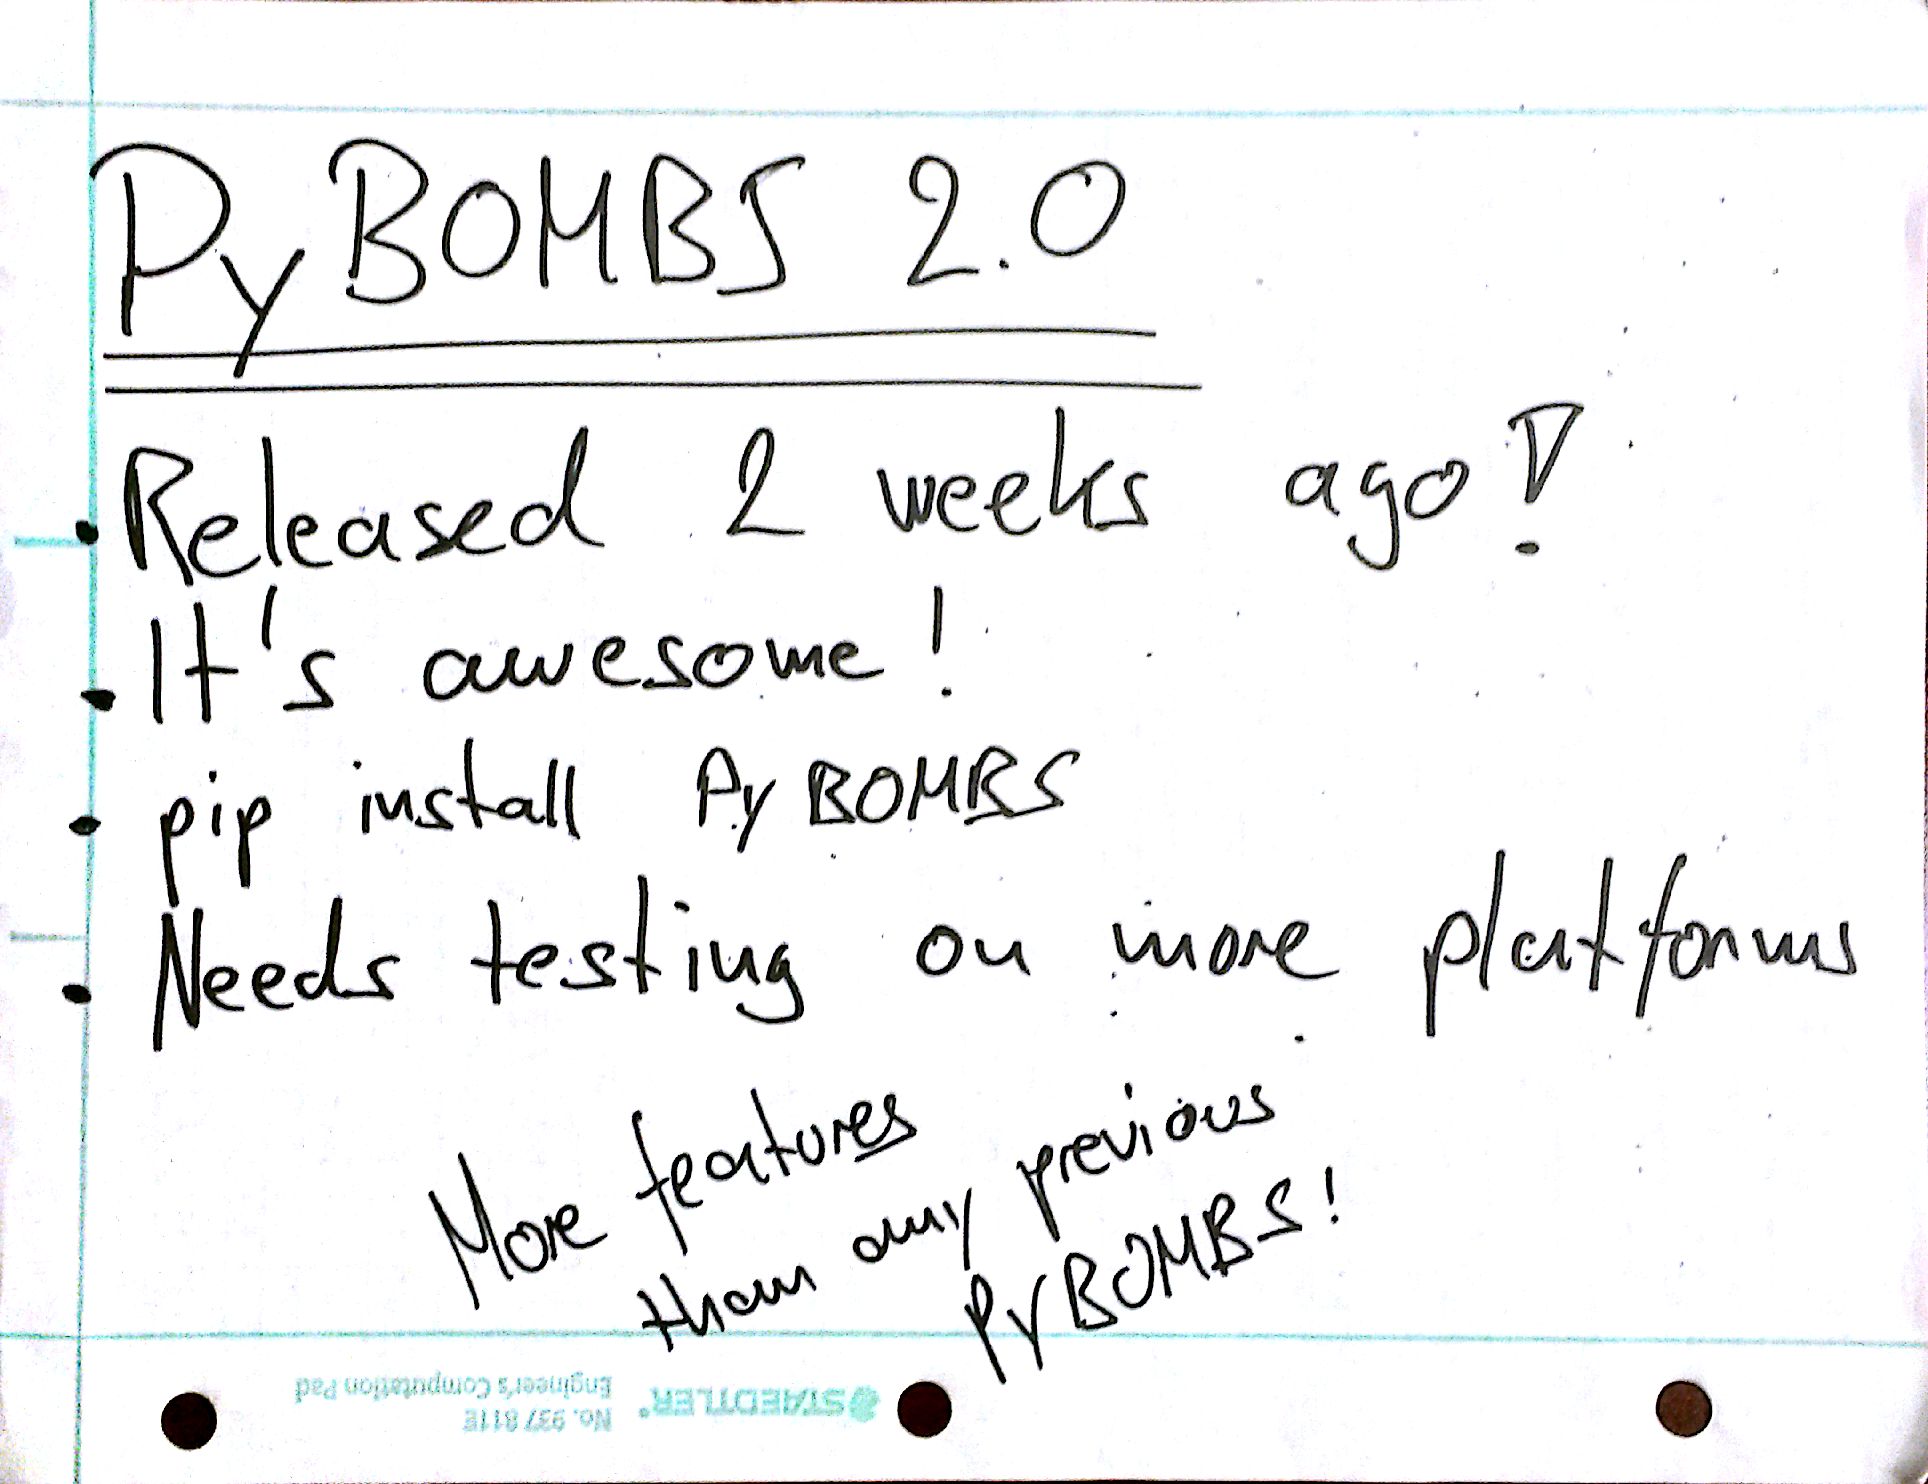 PyBOMBS 2.0
• Released 2 weeks ago!
• It's awesome!
• pip install PyBOMBS
• Needs testing on more platforms
More features
than any previous
PyBOMBS!
STAEDTLER®
No. 937 811E
Engineer's Computation Pad